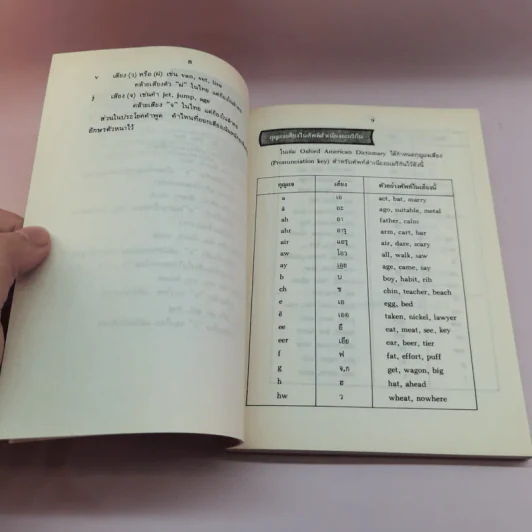 ๘
v เสียง (ว) หรือ (ฝ) เช่น van, vet, live
คล้ายเสียงตัว "ฝ" ในไทย
j เสียง (จ) เช่นคำ jet, jump, age
คล้ายเสียง "จ" ในไทย
ส่วนในประโยคคำพูด คำไหนที่ออกเสียง
อักษรตัวหนาไว้
๙
กุญแจเสียงในศัพท์สำเนียงอเมริกัน
ในเล่ม Oxford American Dictionary ได้กำหนดกุญแจเสียง
(Pronunciation key) สำหรับศัพท์สำเนียงอเมริกันไว้ดังนี้
กุญแจ เสียง ตัวอย่างศัพท์ในเสียงนี้
a แอ act, bat, marry
ă อะ ago, suitable, metal
ah อา father, calm
ahr อาร์ arm, cart, bar
air แอร์ air, dare, mary
aw โอว all, walk, saw
ay เอย age, came, say
b บ boy, habit, rib
ch ช chin, teacher, beach
e เอ egg, bed
ĕ เออ taken, nickel, lawyer
ee อี eat, meat, see, key
eer เอีย ear, beer, tier
f ฟ fat, effort, puff
g จ,ก get, wagon, big
h ฮ hat, ahead
hw ว wheat, nowhere